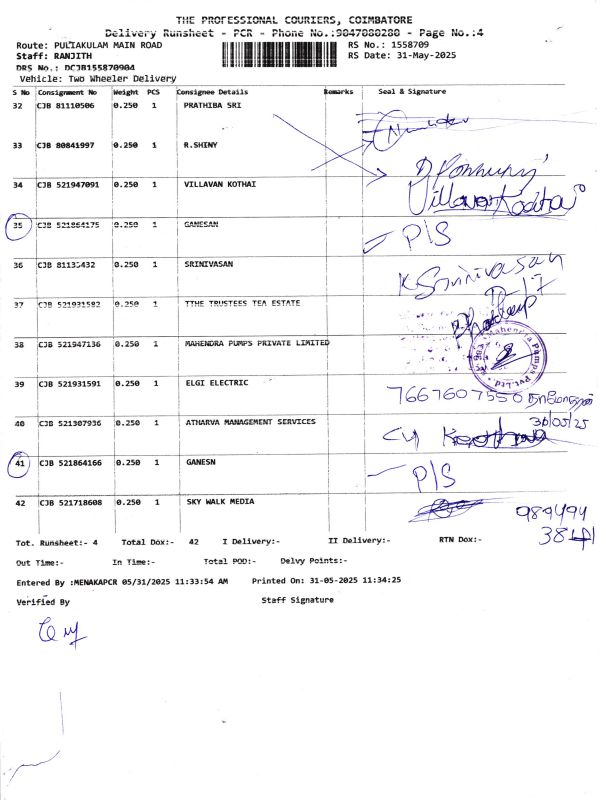 THE PROFESSIONAL COURIERS, COIMBATORE
Delivery Runsheet - PCR - Phone No.:9047080280 - Page No.:4
Route: PULIAKULAM MAIN ROAD RS No.: 1558709
Staff: RANJITH RS Date: 31-May-2025
DRS No.: DCJB155870904
Vehicle: Two Wheeler Delivery
S No Consignment No Weight PCS Consignee Details Remarks Seal & Signature
32 CJB 81110506 0.250 1 PRATHIBA SRI
33 CJB 80841997 0.250 1 R.SHINY
34 CJB 521947091 0.250 1 VILLAVAN KOTHAI Villavan Kodhai
35 CJB 521864175 0.250 1 GANESAN P/S
36 CJB 81135432 0.250 1 SRINIVASAN K Srinivasan
37 CJB 521931582 0.250 1 TTHE TRUSTEES TEA ESTATE
38 CJB 521947136 0.250 1 MAHENDRA PUMPS PRIVATE LIMITED Mahendra Pumps Pvt. Ltd.
39 CJB 521931591 0.250 1 ELGI ELECTRIC 7667607550
40 CJB 521307936 0.250 1 ATHARVA MANAGEMENT SERVICES 30/05/25
41 CJB 521864166 0.250 1 GANESN P/S
42 CJB 521718608 0.250 1 SKY WALK MEDIA 989494
Tot. Runsheet:- 4 Total Dox:- 42 I Delivery:- II Delivery:- RTN Dox:-
Out Time:- In Time:- Total POD:- Delvy Points:-
Entered By :MENAKAPCR 05/31/2025 11:33:54 AM Printed On: 31-05-2025 11:34:25
Verified By Staff Signature